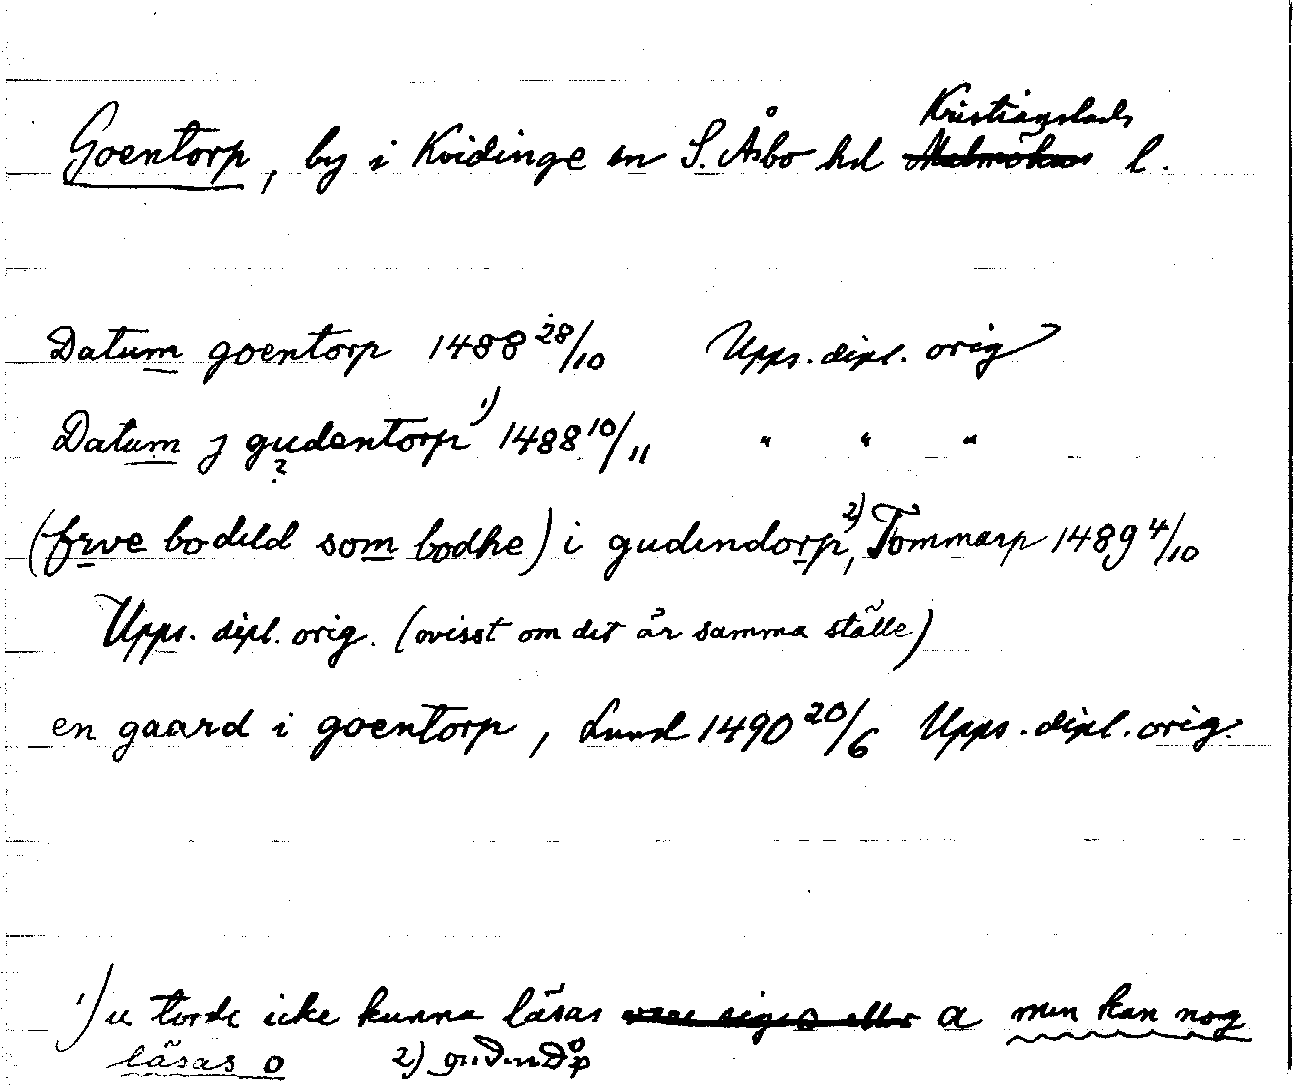 Kristianstads
Goentorp, by i Kvidinge sn S. Åsbo hd Malmöhus l.
Datum goentorp 1488 28/10 Upps. dipl. orig
Datum j gudentorp 1) 1488 10/11 " " "
?
(frve bodild som bodhe) i gudendorp 2), Tommarp 1489 4/10
Upps. dipl. orig. (ovisst om det är samma ställe)
en gaard i goentorp, Lund 1490 20/6 Upps. dipl. orig.
1) u torde icke kunna läsas a men kan nog
läsas o 2) gudendp